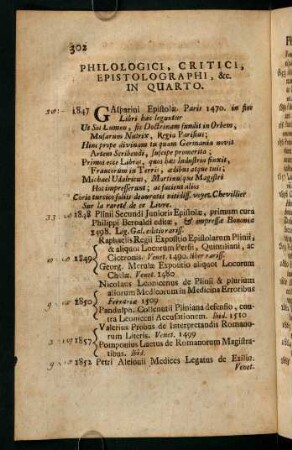 302
PHILOLOGICI, CRITICI,
EPISTOLOGRAPHI, &c.
IN QUARTO.
1847 GAsparini Epistolæ. Paris 1470. in fine
Libri hæc leguntur
Ut Sol Lumen, sic Doctrinam fundit in Orbem,
Musarum Nutrix, Regia Parisius;
Hinc prope divinam tu quam Germania novit
Artem Scribendi, suscipe promerita;
Primos ecce Libros, quos hæc industria finxit,
Francorum in Terris, ædibus atque tuis;
Michael Udalricus, Martinusque Magistri
Hos impresserunt; ac facient alios
voyez Chevillier
Sur la rareté de ce Livre.
1848 Plinii Secundi Junioris Epistolæ, primum cura
Philippi Beroaldi editæ, & impressæ Bononiæ
1498. Lig. Gal. editio rariss.
Raphaelis Regii Expositio Epistolarum Plinii,
& aliquot Locorum Persii, Quintiliani, ac
1849 Ciceronis. Venet. 1490. liber rariss.
Georg. Merulæ Expositio aliquot Locorum
Venet. 1480
Nicolaus Leonicenus de Plinii & plurium
aliorum Medicorum in Medicina Erroribus
1850 Ferrariæ 1509
Pandulph. Collenutii Pliniana defensio, con-
tra Leoniceni Accusationem. Ibid. 1510
Valerius Probus de Interpretandis Romano-
rum Literis. Venet. 1499
1857 Pomponius Lætus de Romanorum Magistra-
tibus. Ibid.
1852 Petri Alcionii Medices Legatus de Exilio.
Venet.